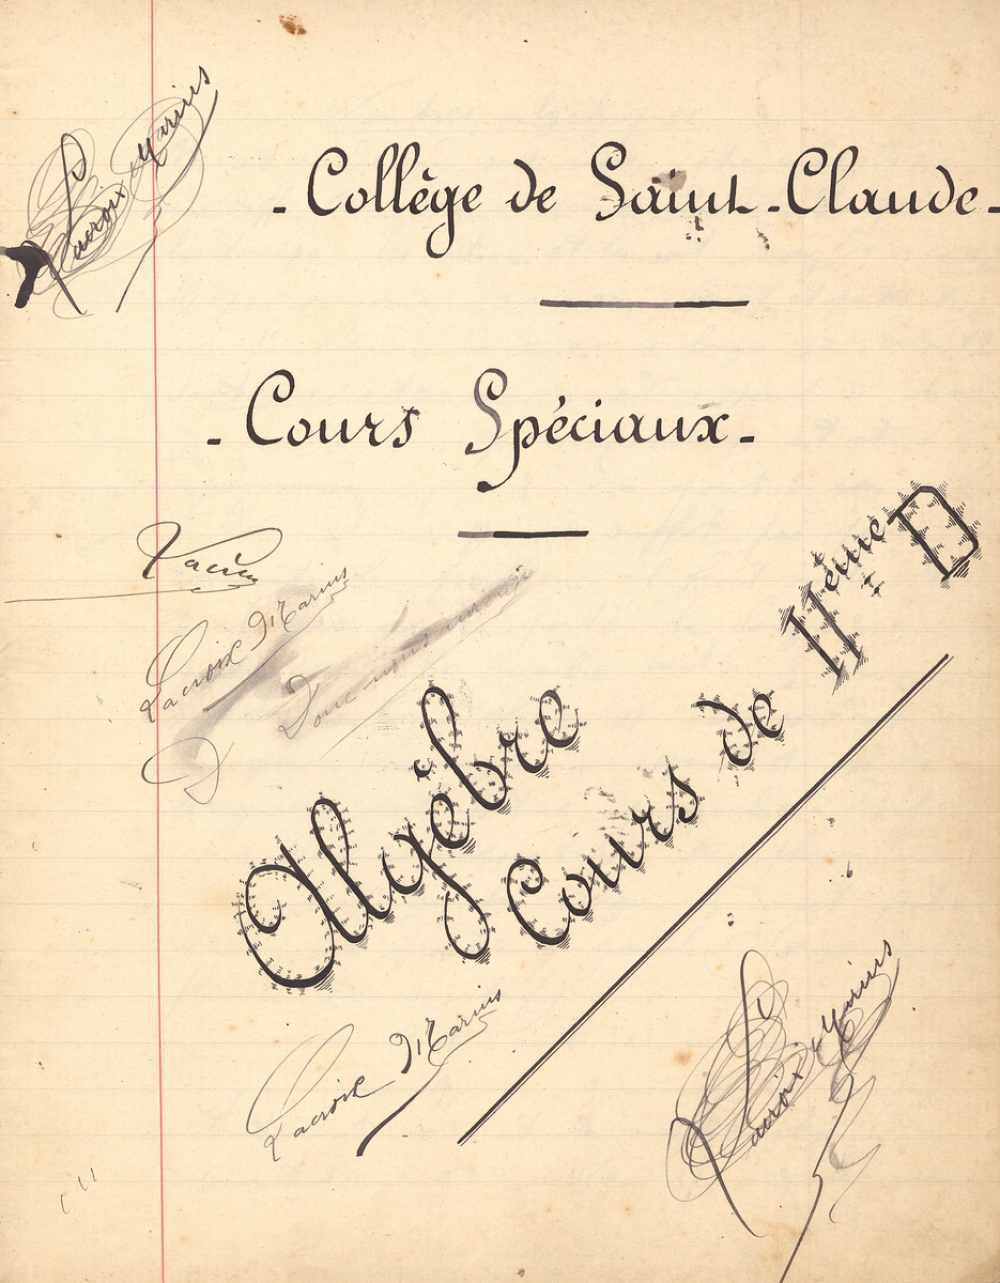 Lacroix Marius
- Collège de Saint-Claude -
- Cours Spéciaux -
Lacroix Marius
Algèbre
Cours de IIème D
Lacroix Marius
Lacroix Marius